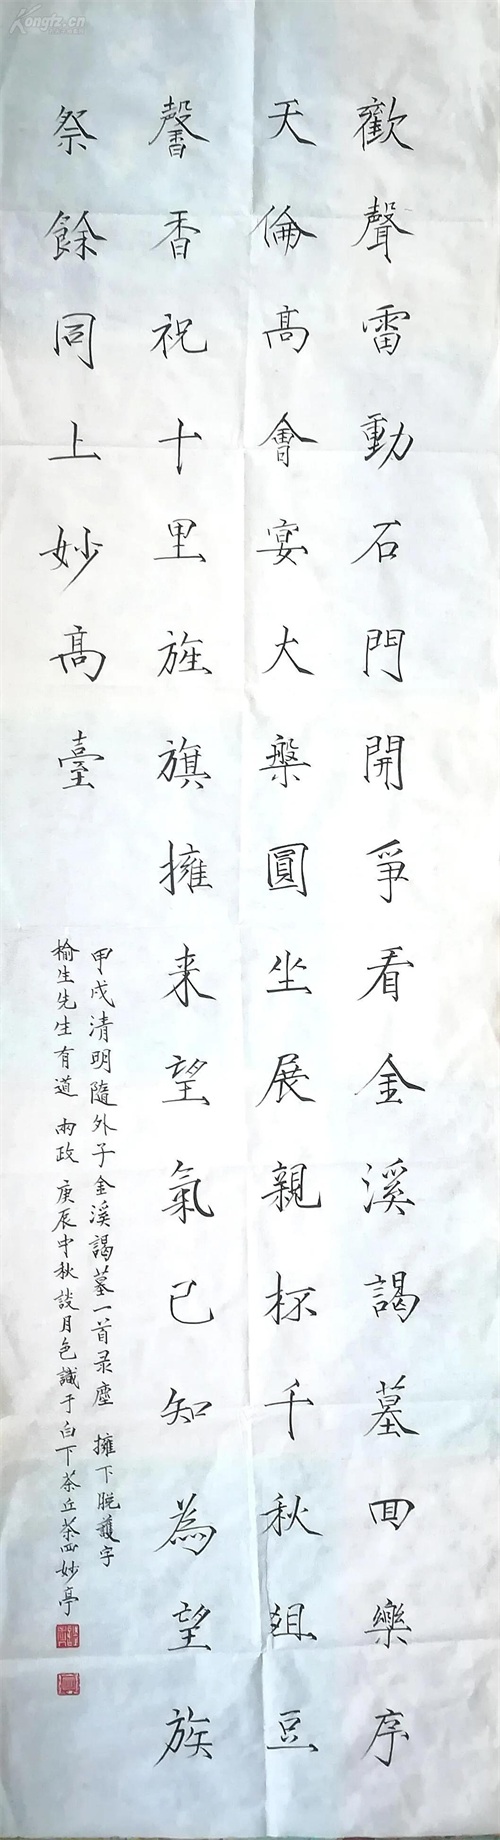 歡聲雷動石門開爭看金溪謁墓回樂序
天倫高會宴大槃圓坐展親杯千秋俎豆
馨香祝十里旌旗擁来望氣已知為望族
祭餘同上妙高臺
甲戌清明隨外子金溪謁墓一首录塵 擁下脱護字
榆生先生有道 兩政 庚辰中秋談月色識于白下茶丘茶四妙亭
Kongfz.cn